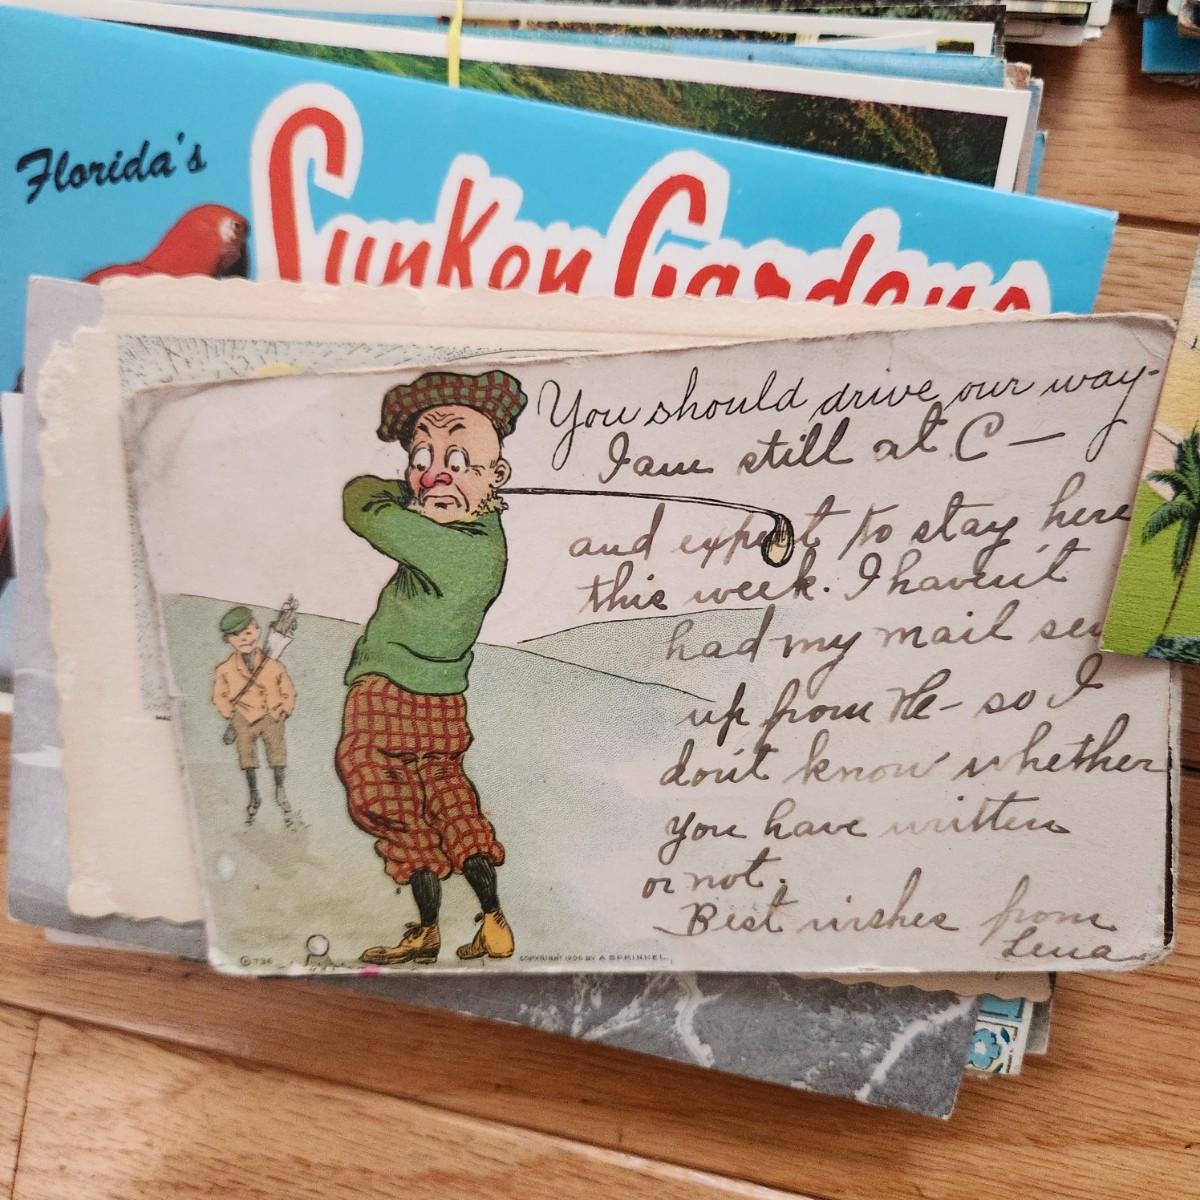 Florida's
Sunken Gardens
You should drive our way-
I am still at C —
and expect to stay here
this week. I haven't
had my mail
up from He- so I
don't know whether
you have written
or not.
Best wishes from
Lena
© 736
COPYRIGHT 1906 BY A SPRINKEL